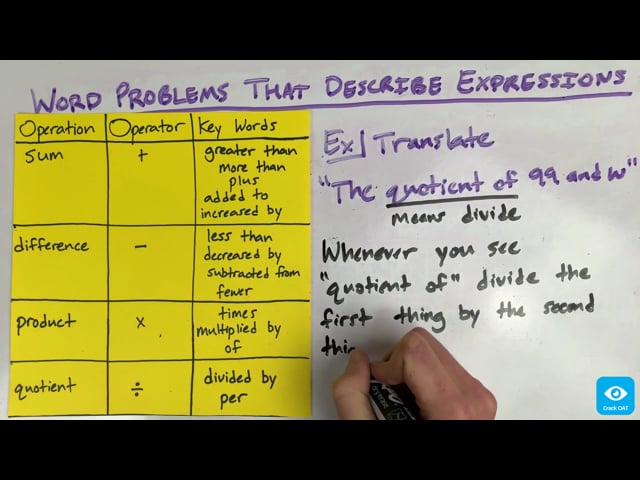 WORD PROBLEMS THAT DESCRIBE EXPRESSIONS
Operation Operator Key Words
sum + greater than
more than
plus
added to
increased by
difference − less than
decreased by
subtracted from
fewer
product × times
multiplied by
of
quotient ÷ divided by
per
Ex] Translate
"The quotient of 99 and w"
means divide
Whenever you see
"quotient of" divide the
first thing by the second
thi
Crack OAT